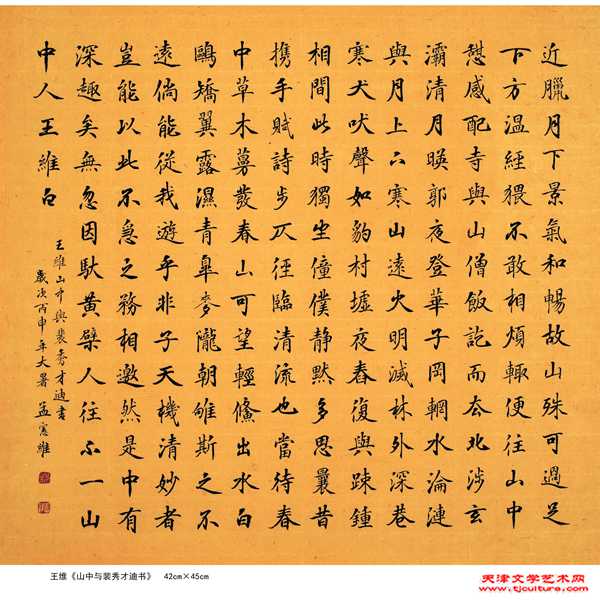 近臘月下景氣和暢故山殊可過足
下方溫經猥不敢相煩輒便往山中
憇感配寺與山僧飯訖而去北涉玄
灞清月暎郭夜登華子岡輞水淪漣
與月上下寒山遠火明滅林外深巷
寒犬吠聲如豹村墟夜舂復與踈鍾
相間此時獨坐僮僕静默多思曩昔
攜手賦詩步仄徑臨清流也當待春
中草木蔓發春山可望輕鯈出水白
鷗矯翼露濕青皋麥隴朝雊斯之不
遠倘能從我遊乎非子天機清妙者
豈能以此不急之務相邀然是中有
深趣矣無忽因馱黃檗人往不一山
中人王維白
王維山中與裴秀才迪書
歲次丙申年大暑孟憲維
王维《山中与裴秀才迪书》 42cm×45cm
天津文学艺术网
www.tjculture.com